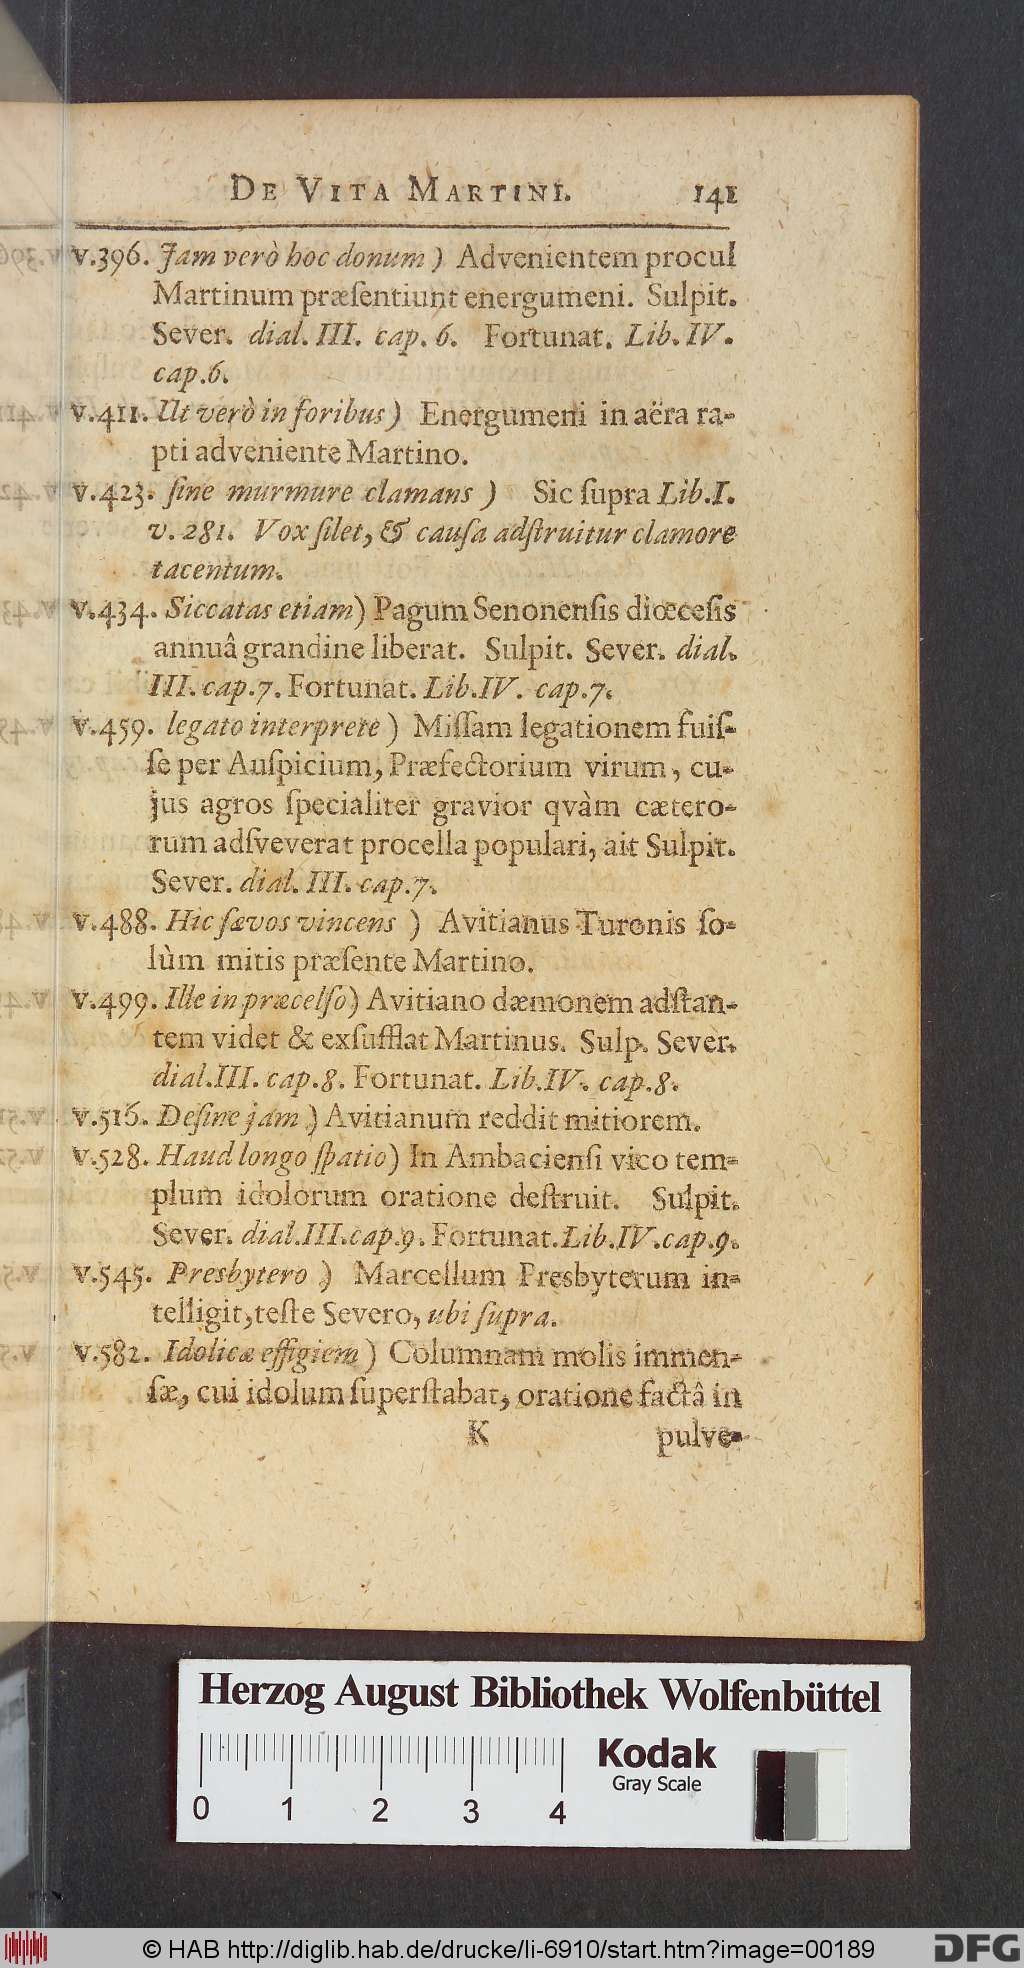 DE VITA MARTINI. 141
v.396. Jam verò hoc donum ) Advenientem procul
Martinum præſentiunt energumeni. Sulpit.
Sever. dial. III. cap. 6. Fortunat. Lib. IV.
cap.6.
v.411. Ut verò in foribus ) Energumeni in aëra ra-
pti adveniente Martino.
v.423. ſine murmure clamans ) Sic ſupra Lib.I.
v. 281. Vox ſilet, & cauſa adſtruitur clamore
tacentum.
v.434. Siccatas etiam) Pagum Senonenſis diœceſis
annuâ grandine liberat. Sulpit. Sever. dial.
III. cap.7. Fortunat. Lib.IV. cap.7.
v.459. legato interprete ) Miſſam legationem fuiſ-
ſe per Auſpicium, Præfectorium virum, cu-
jus agros ſpecialiter gravior qvàm cætero-
rum adſveverat procella populari, ait Sulpit.
Sever. dial. III. cap.7.
v.488. Hic ſævos vincens ) Avitianus Turonis ſo-
lùm mitis præſente Martino.
v.499. Ille in præcelſo) Avitiano dæmonem adſtan-
tem videt & exſufflat Martinus. Sulp. Sever.
dial.III. cap.8. Fortunat. Lib.IV. cap.8.
v.516. Deſine jam ) Avitianum reddit mitiorem.
v.528. Haud longo ſpatio) In Ambacienſi vico tem-
plum idolorum oratione deſtruit. Sulpit.
Sever. dial.III.cap.9. Fortunat. Lib.IV.cap.9.
v.545. Presbytero ) Marcellum Presbyterum in-
telligit, teſte Severo, ubi ſupra.
v.582. Idolicæ effigiem ) Columnam molis immen-
ſæ, cui idolum ſuperſtabat, oratione factâ in
K pulve-
Herzog August Bibliothek Wolfenbüttel
Kodak
Gray Scale
0 1 2 3 4
© HAB http://diglib.hab.de/drucke/li-6910/start.htm?image=00189
DFG